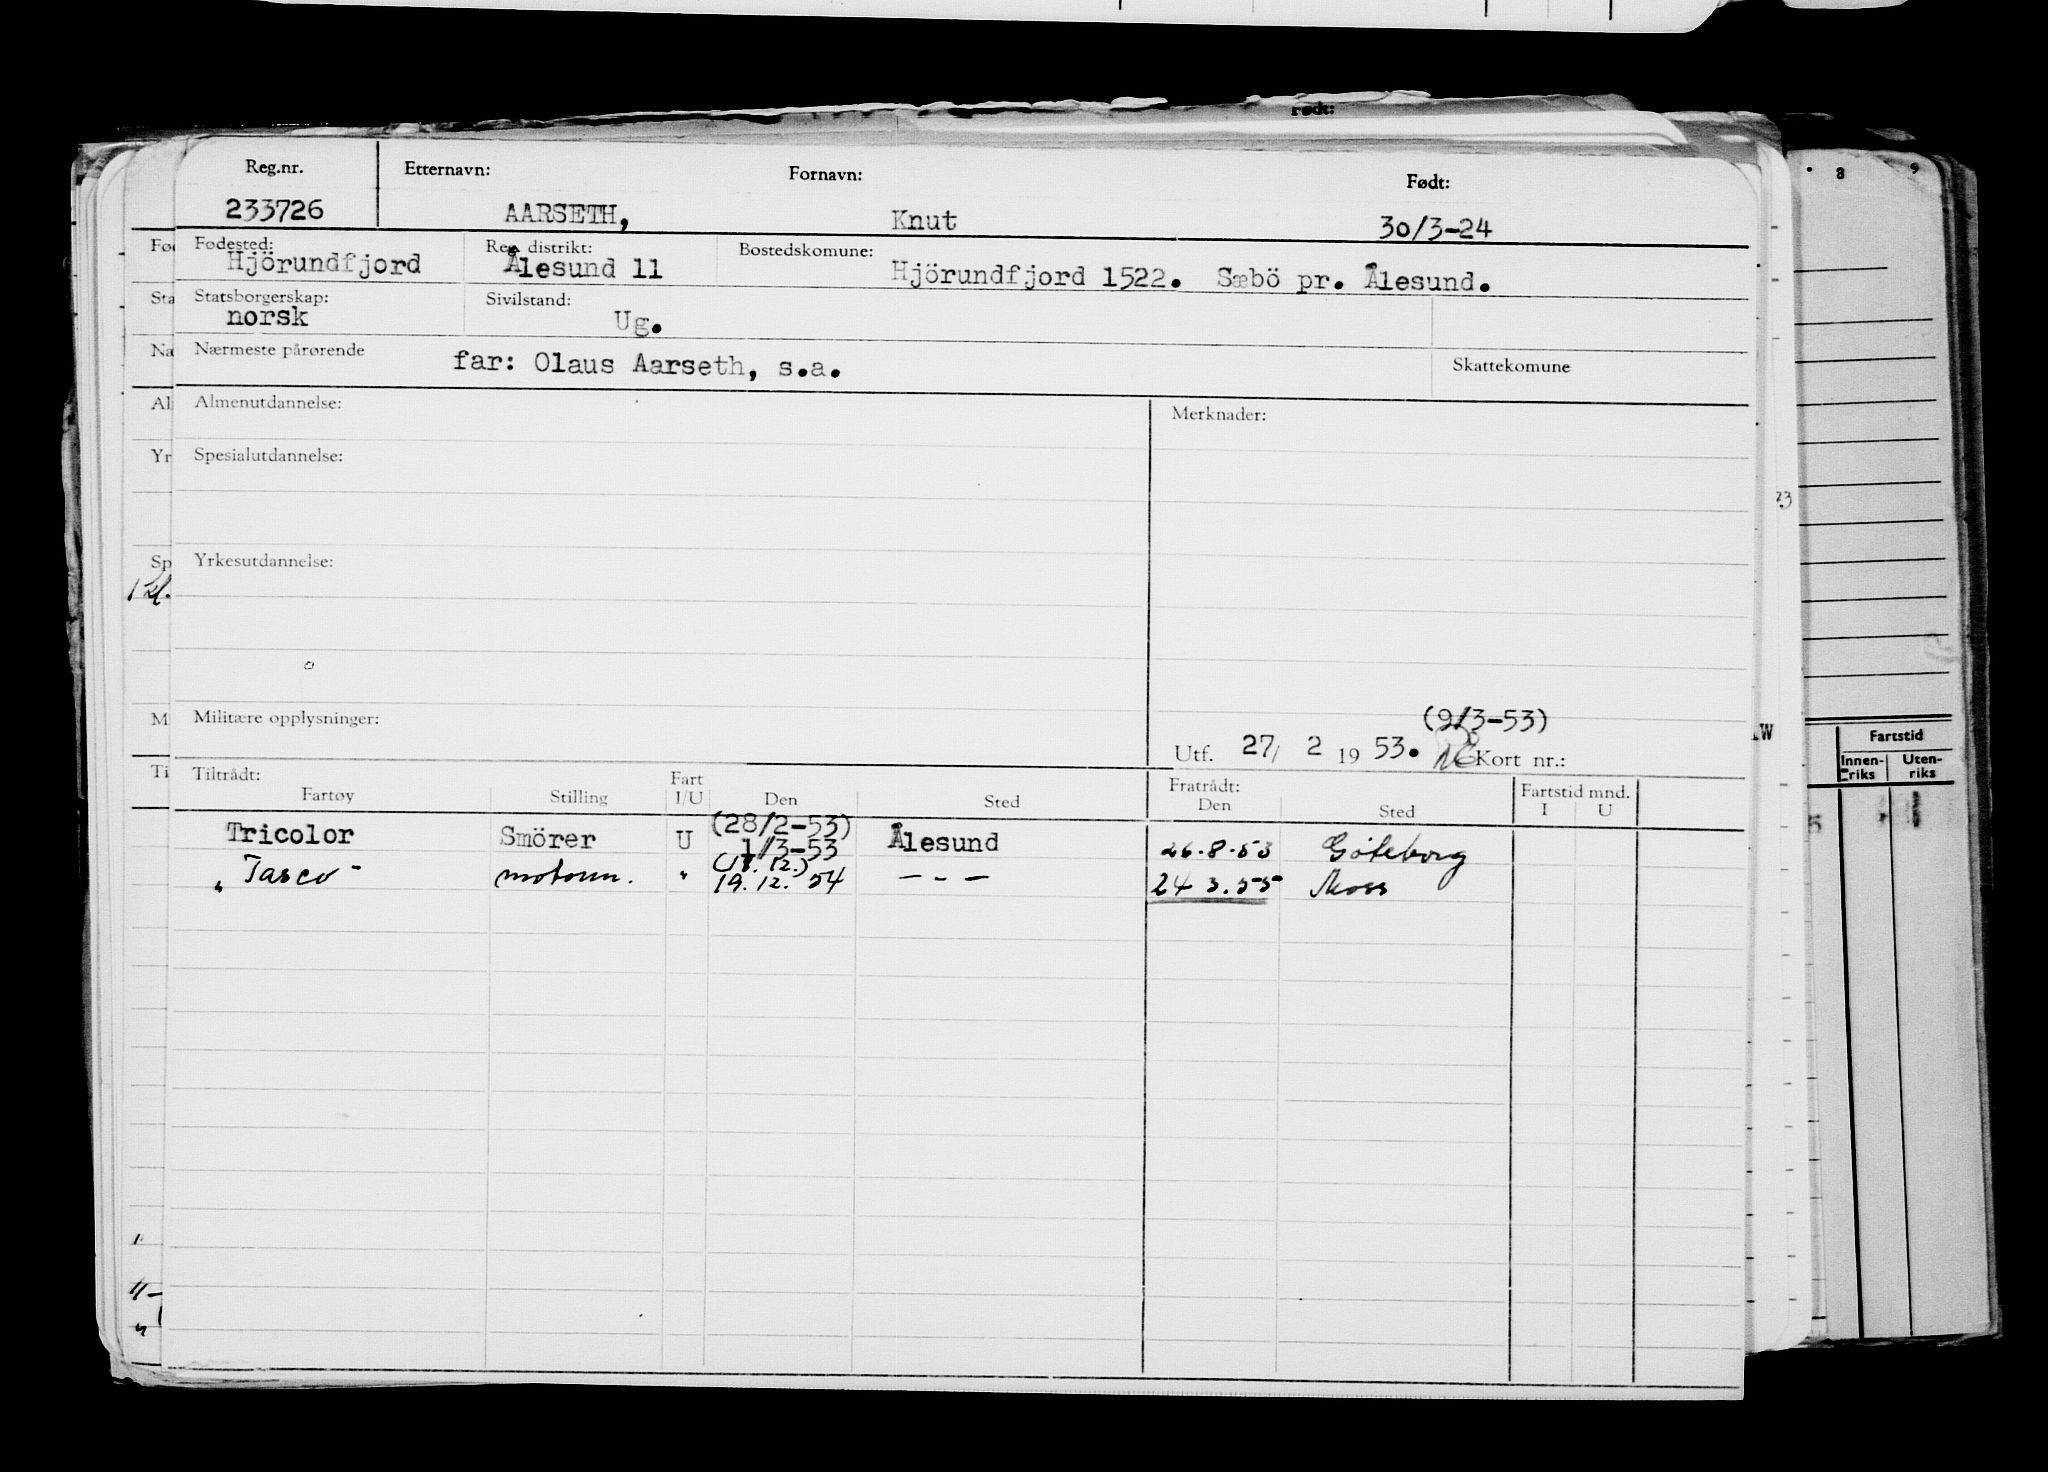 født:
Reg.nr. Etternavn: Fornavn: Født:
233726 AARSETH, Knut 30/3-24
Fødested: Reg. distrikt: Bostedskomune:
Hjörundfjord Ålesund 11 Hjörundfjord 1522. Sæbö pr. Ålesund.
Statsborgerskap: Sivilstand:
norsk Ug.
Nærmeste pårørende far: Olaus Aarseth, s.a. Skattekomune
Almenutdannelse: Merknader:
Spesialutdannelse:
Yrkesutdannelse:
Militære opplysninger: (9/3-53)
Utf. 27/ 2 19 53. Kort nr.:
Tiltrådt: Fratrådt:
Fartøy Stilling Fart I/U Den Sted Den Sted Fartstid mnd. I U
(28/2-53)
Tricolor Smörer U 1/3-53 Ålesund 26.8.53 Göteborg
(18. 12.)
"Tasco" motorm. " 19. 12. 54 — - — 24 3.55 Moss
8 9
Fartstid
Innen-riks Uten-riks